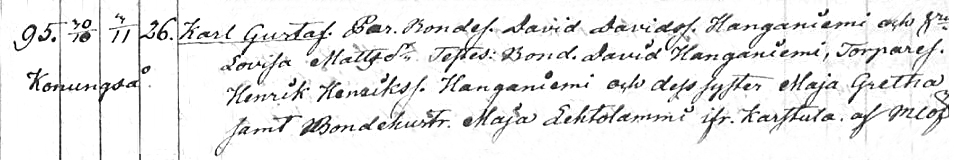 95. 30/10 7/11 26. Karl Gustaf. Par. Bondes. David Davidss. Hanganiemi och
Lovisa Mattsdr. Testes: Bond. David Hanganiemi, Torpares.
Konungså. Henrik Henrikss. Hanganiemi och dess syster Maja Gretha
samt Bondehustr. Maja Lehtolammi ifr. Karstula. af